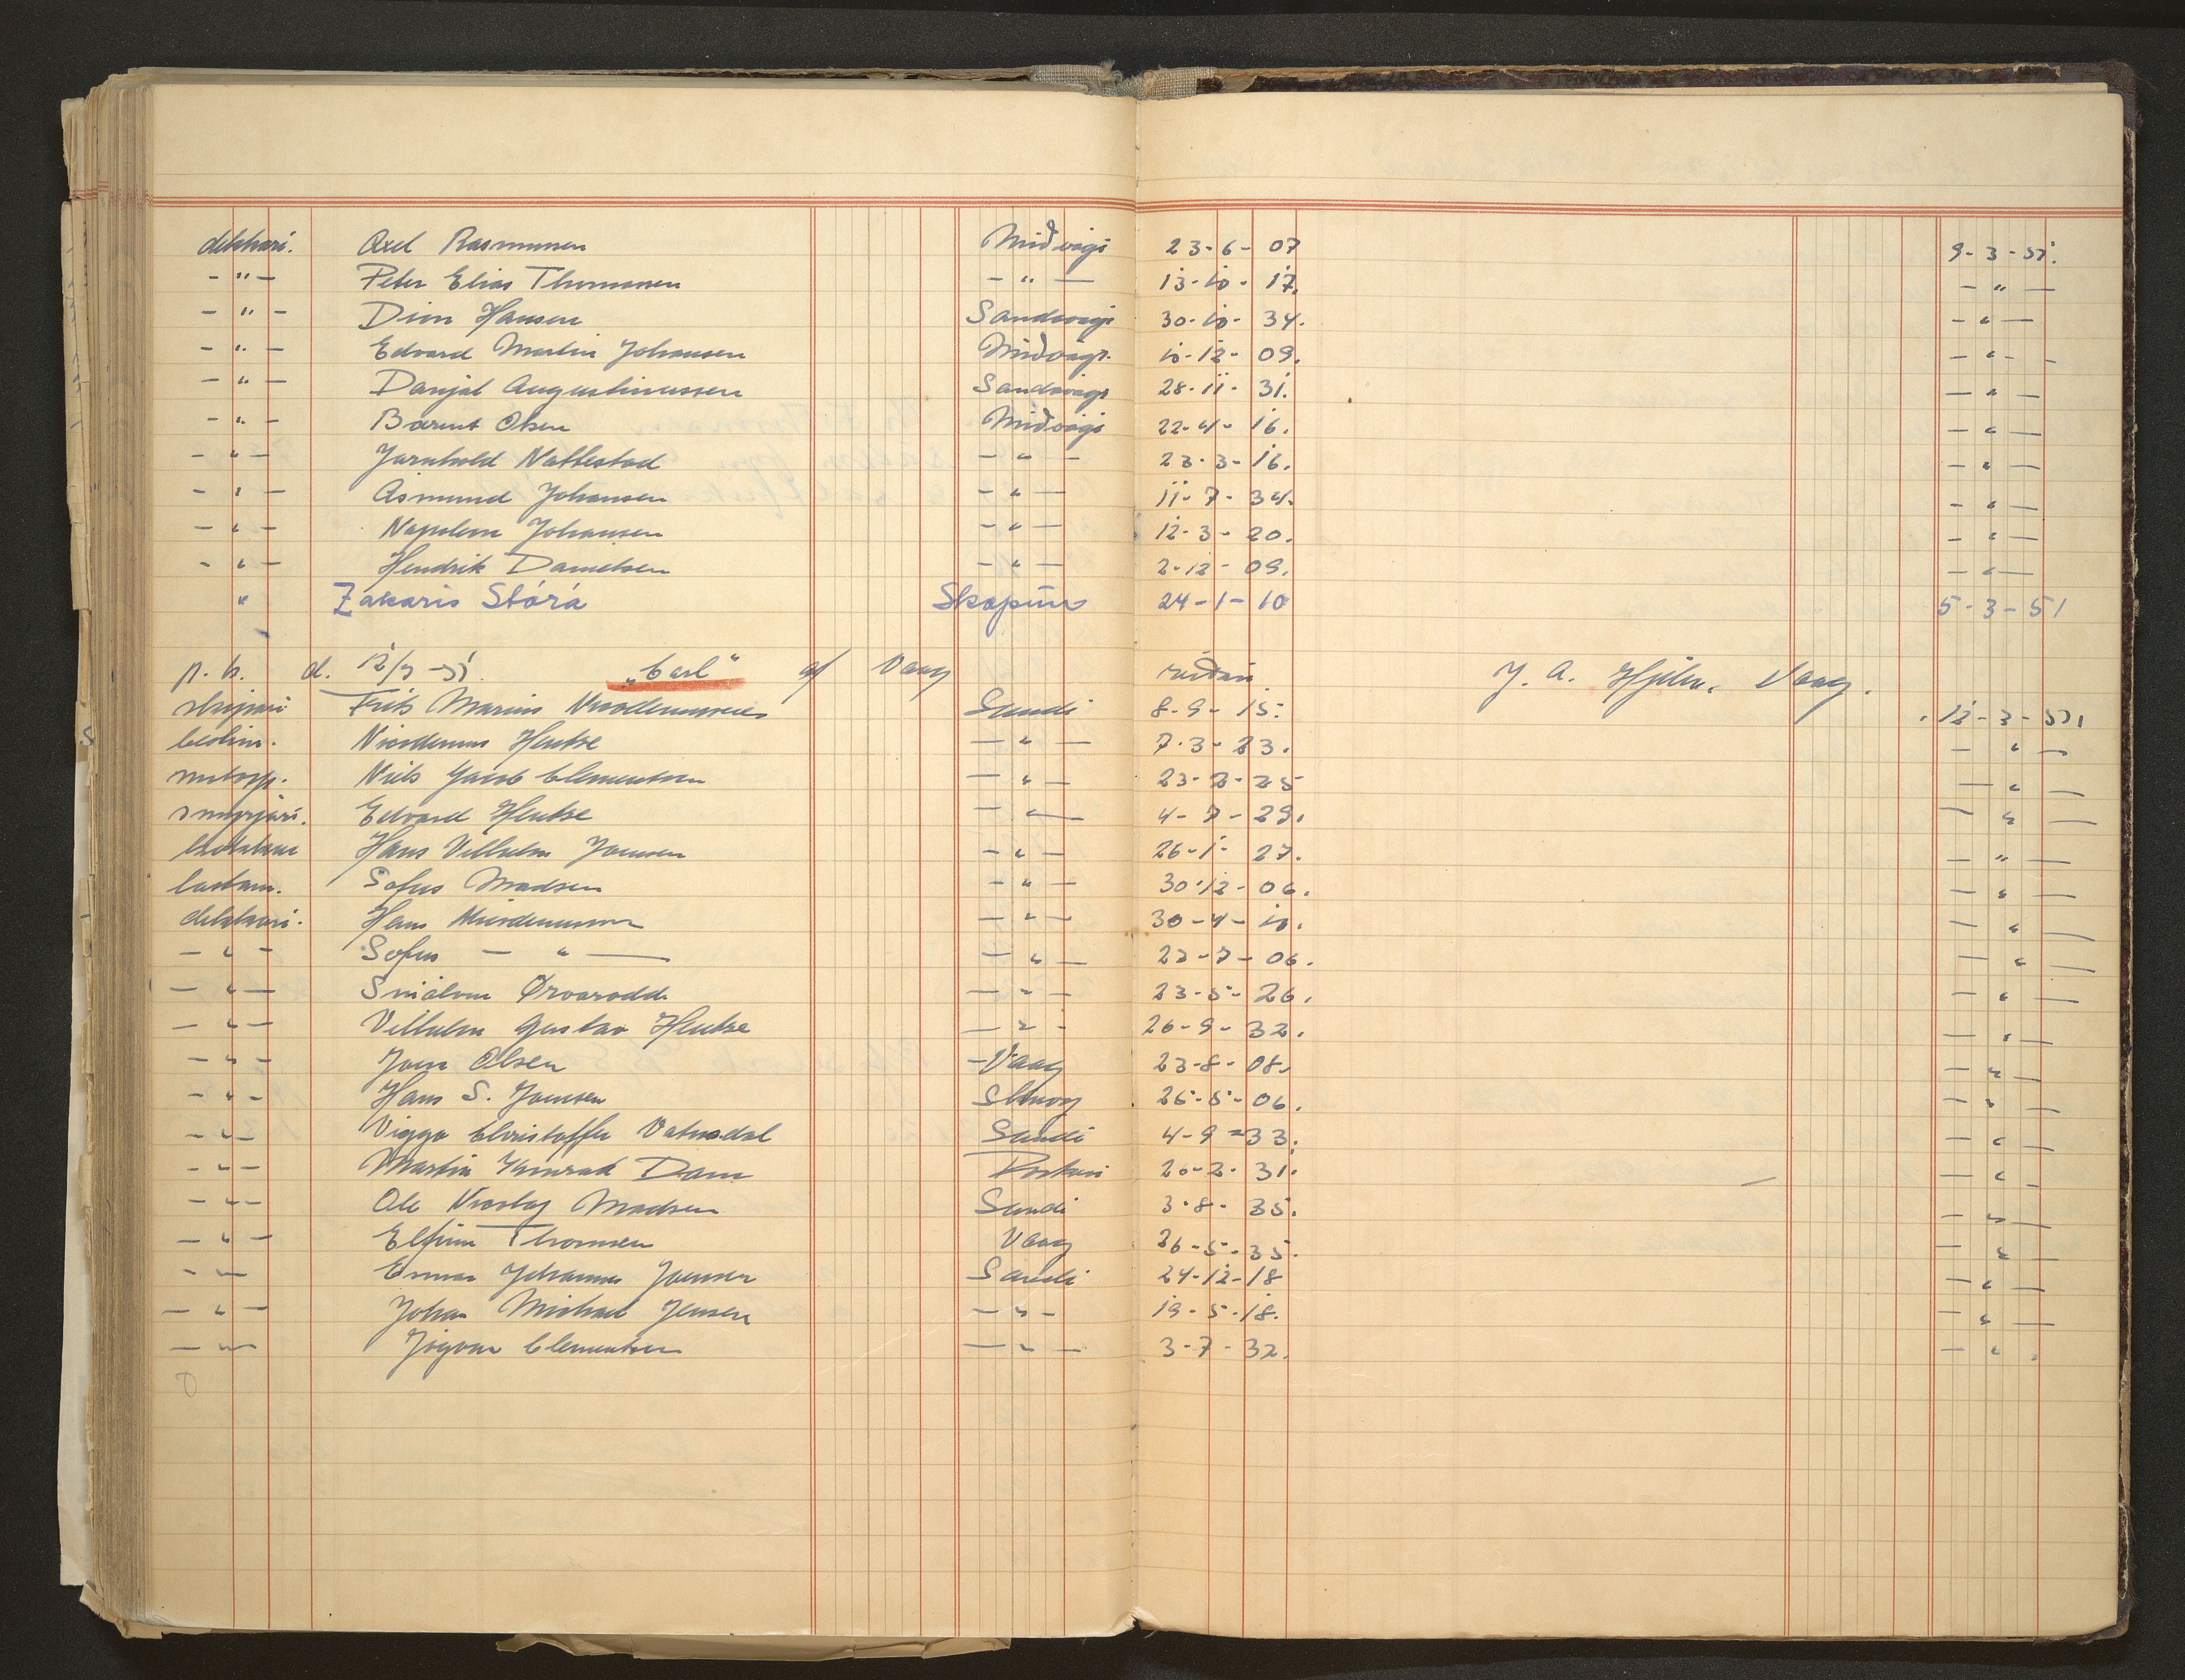 dekkari. Axel Rasmussen Miðvági 23-6-07 9-3-51.
-"- Peter Elias Thomassen -"- 13-10-17. -"-
-"- Dion Hansen Sandavági 30-10-34. -"-
-"- Edvard Martin Johansen Miðvági. 10-12-09. -"-
-"- Danjal Augustinussen Sandavági 28-11-31. -"-
-"- Barent Olsen Miðvági 22-4-16. -"-
-"- Jarnhold Nattestad -"- 23-3-16. -"-
-"- Asmund Johansen -"- 11-7-34. -"-
-"- Napoleon Johansen -"- 12-3-20. -"-
-"- Hendrik Danielsen -"- 2-12-09. -"-
" Zakaris Stórá Skopun 24-1-10 5-3-51
p. b. d. 12/3-51. "Carl" af Vaag J. A. Hjelm, Vaag.
skipari Frits Marius Nicodemussen Sandi 8-9-15. 12-3-51.
bestim. Nicodemus Hentze -"- 7-3-23. -"-
motorp. Niels Jacob Clementsen -"- 23-2-25 -"-
smyrjari. Edvard Hentze -"- 4-7-29. -"-
Hans Vilhelm Joensen -"- 26-1-27. -"-
lastam. Sofus Madsen -"- 30-12-06. -"-
dekkari. Hans Nicodemussen -"- 30-4-10. -"-
-"- Sofus -"- -"- 22-7-06. -"-
-"- Sniálvur Ørvarodd. -"- 23-5-26. -"-
-"- Vilhelm Gustav Hentze -"- 26-9-32. -"-
-"- Joen Olsen -Vaag 23-8-08. -"-
-"- Hans S. Joensen 26-5-06. -"-
-"- Viggo Christoffer Vatnsdal Sandi 4-9-33. -"-
-"- Martin Konrad Dam 20-2-31. -"-
-"- Ole Nicolaj Madsen Sandi 3-8-35. -"-
-"- Elfinn Thomsen Vaag 26-5-35. -"-
-"- Johannes Joensen Sandi 24-12-18 -"-
-"- Johan Michael Jensen -"- 19-5-18. -"-
-"- Jógvan Clementsen -"- 3-7-32. -"-